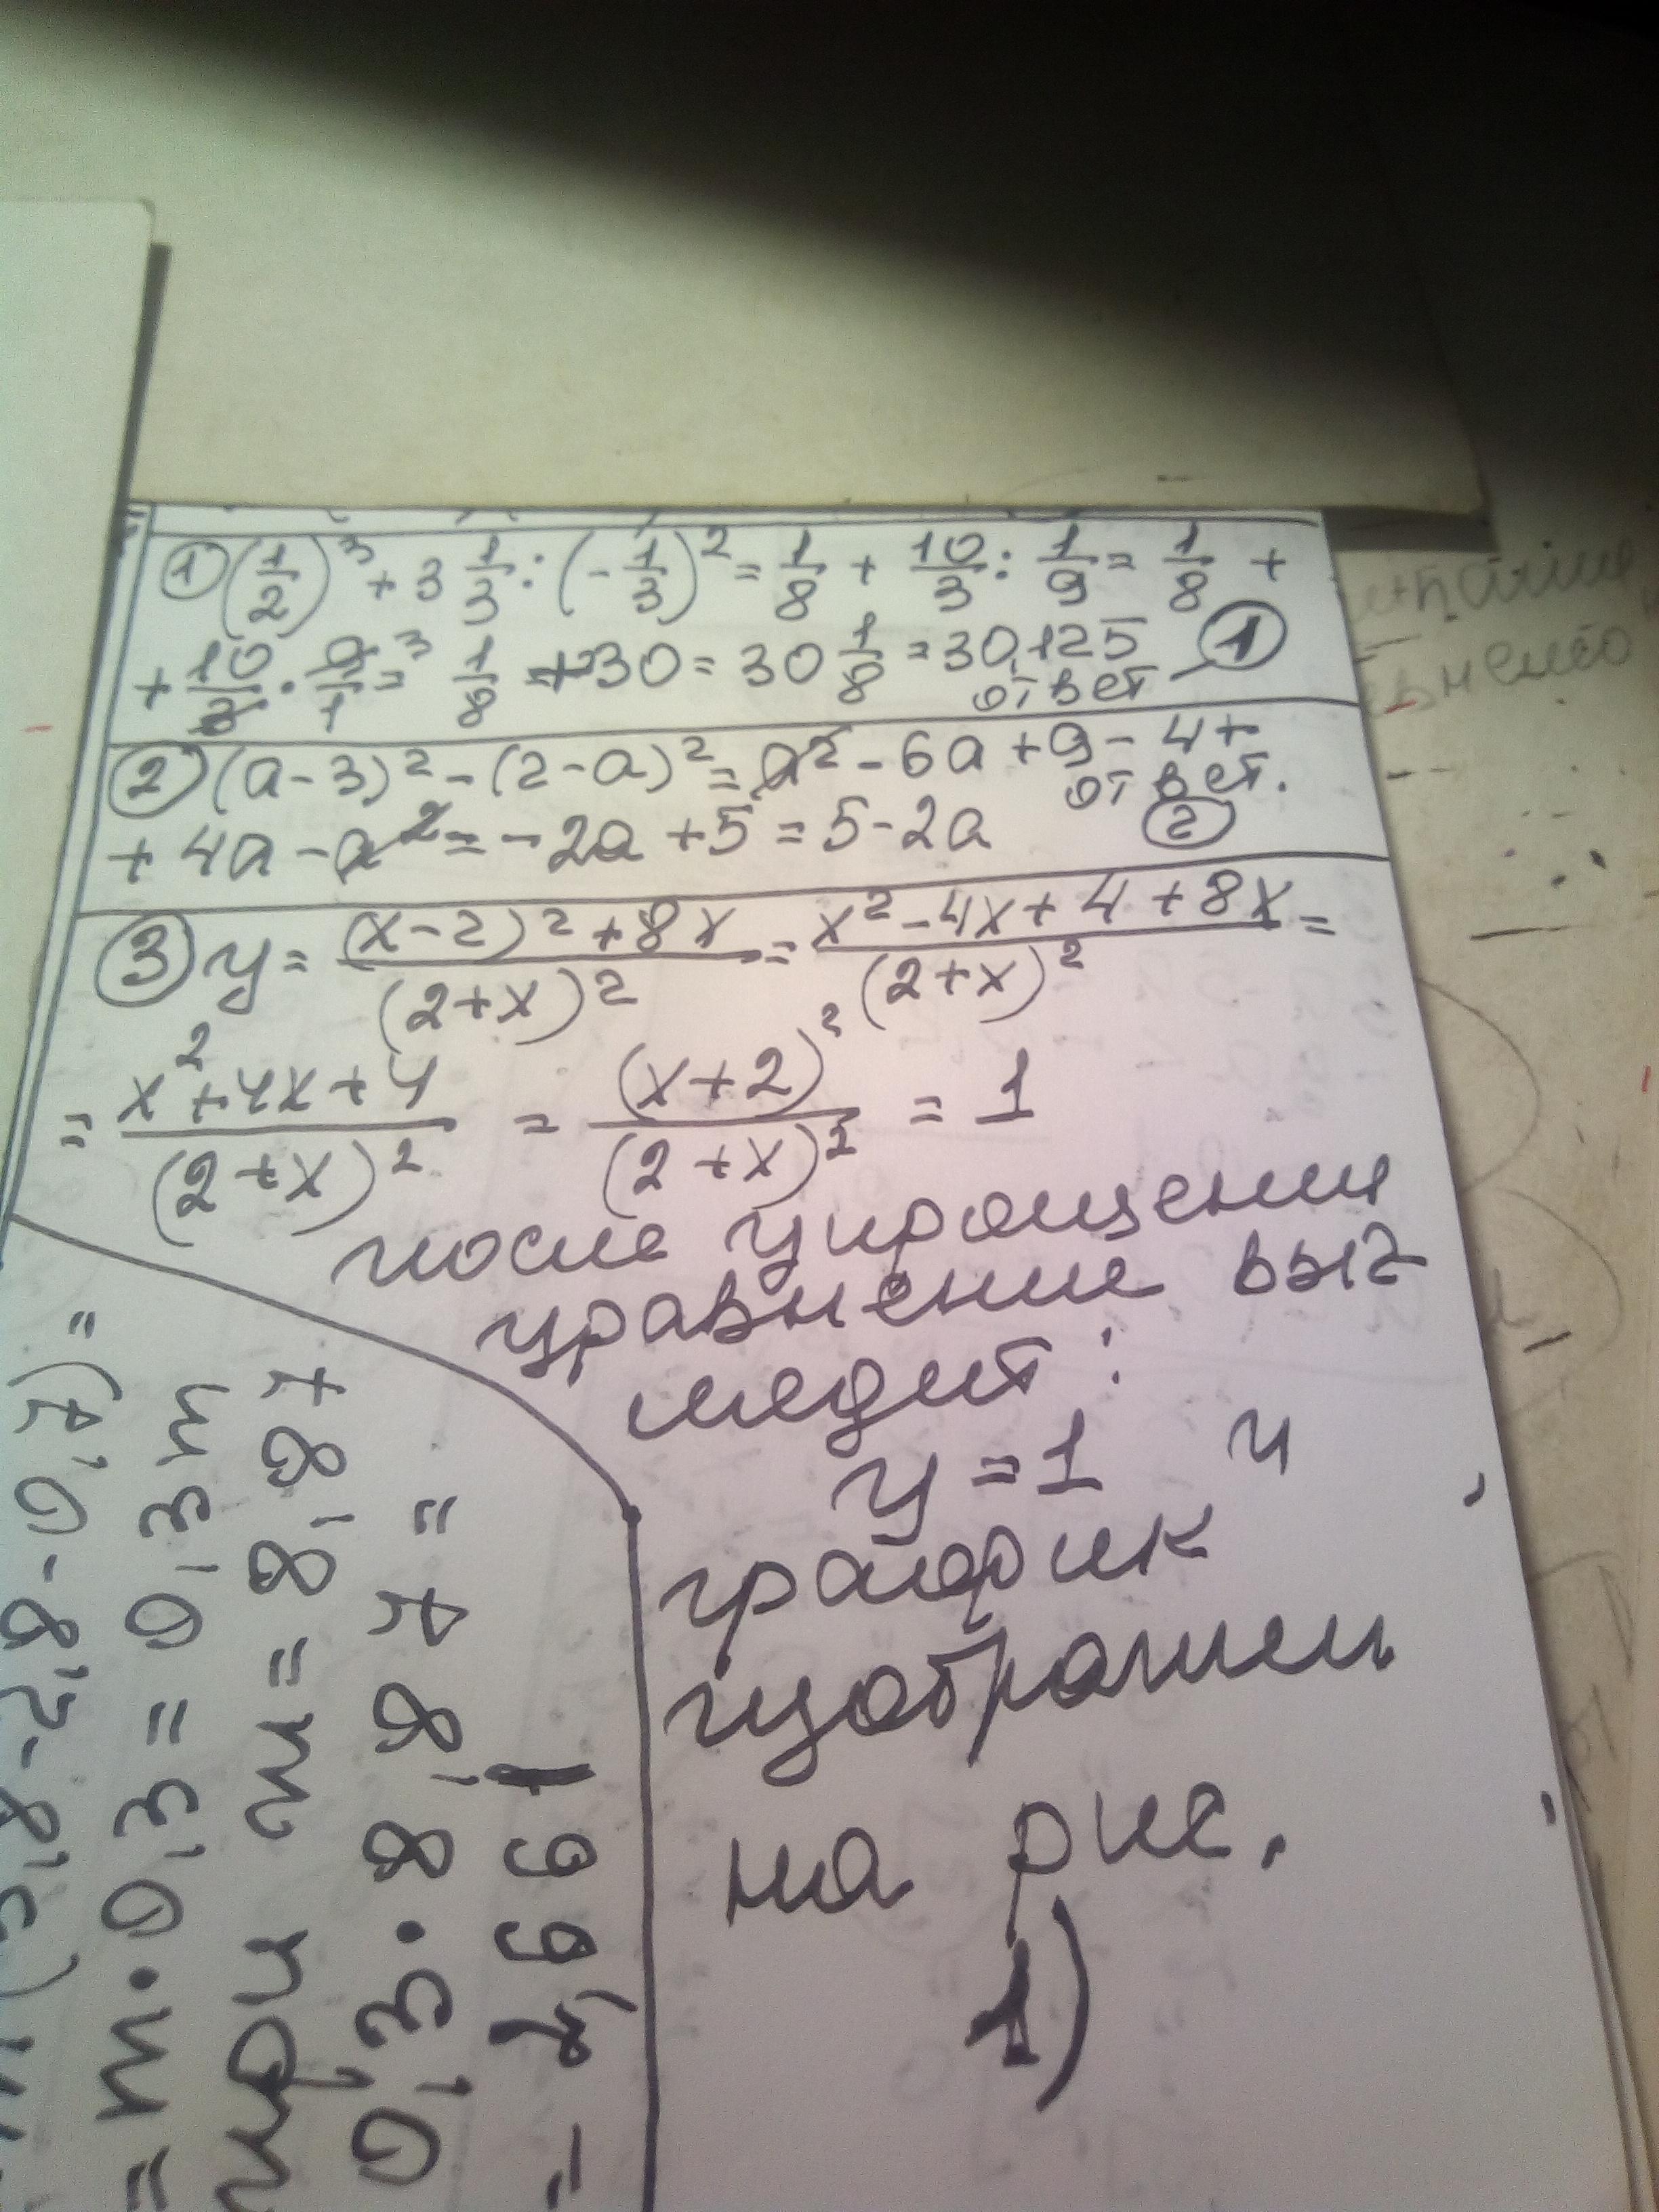 ① (1/2)³ + 3 1/3 : (-1/3)² = 1/8 + 10/3 : 1/9 = 1/8 +
+ 10/3 · 9/1 =³ 1/8 + 30 = 30 1/8 = 30,125
ответ - ①
② (a-3)² - (2-a)² = a² - 6a + 9 - 4 +
+ 4a - a² = -2a + 5 = 5 - 2a
ответ.
②
③ y = (x-2)² + 8x / (2+x)² = x² - 4x + 4 + 8x / (2+x)² =
= x² + 4x + 4 / (2+x)² = (x+2)² / (2+x)² = 1
после упрощении
уравнение выг
медит:
y = 1 и
график
изображен
на рис.
1)
= m · 0,3 = 0,3m
при m = 8,87
0,3 · 8,87 =
= 2,661